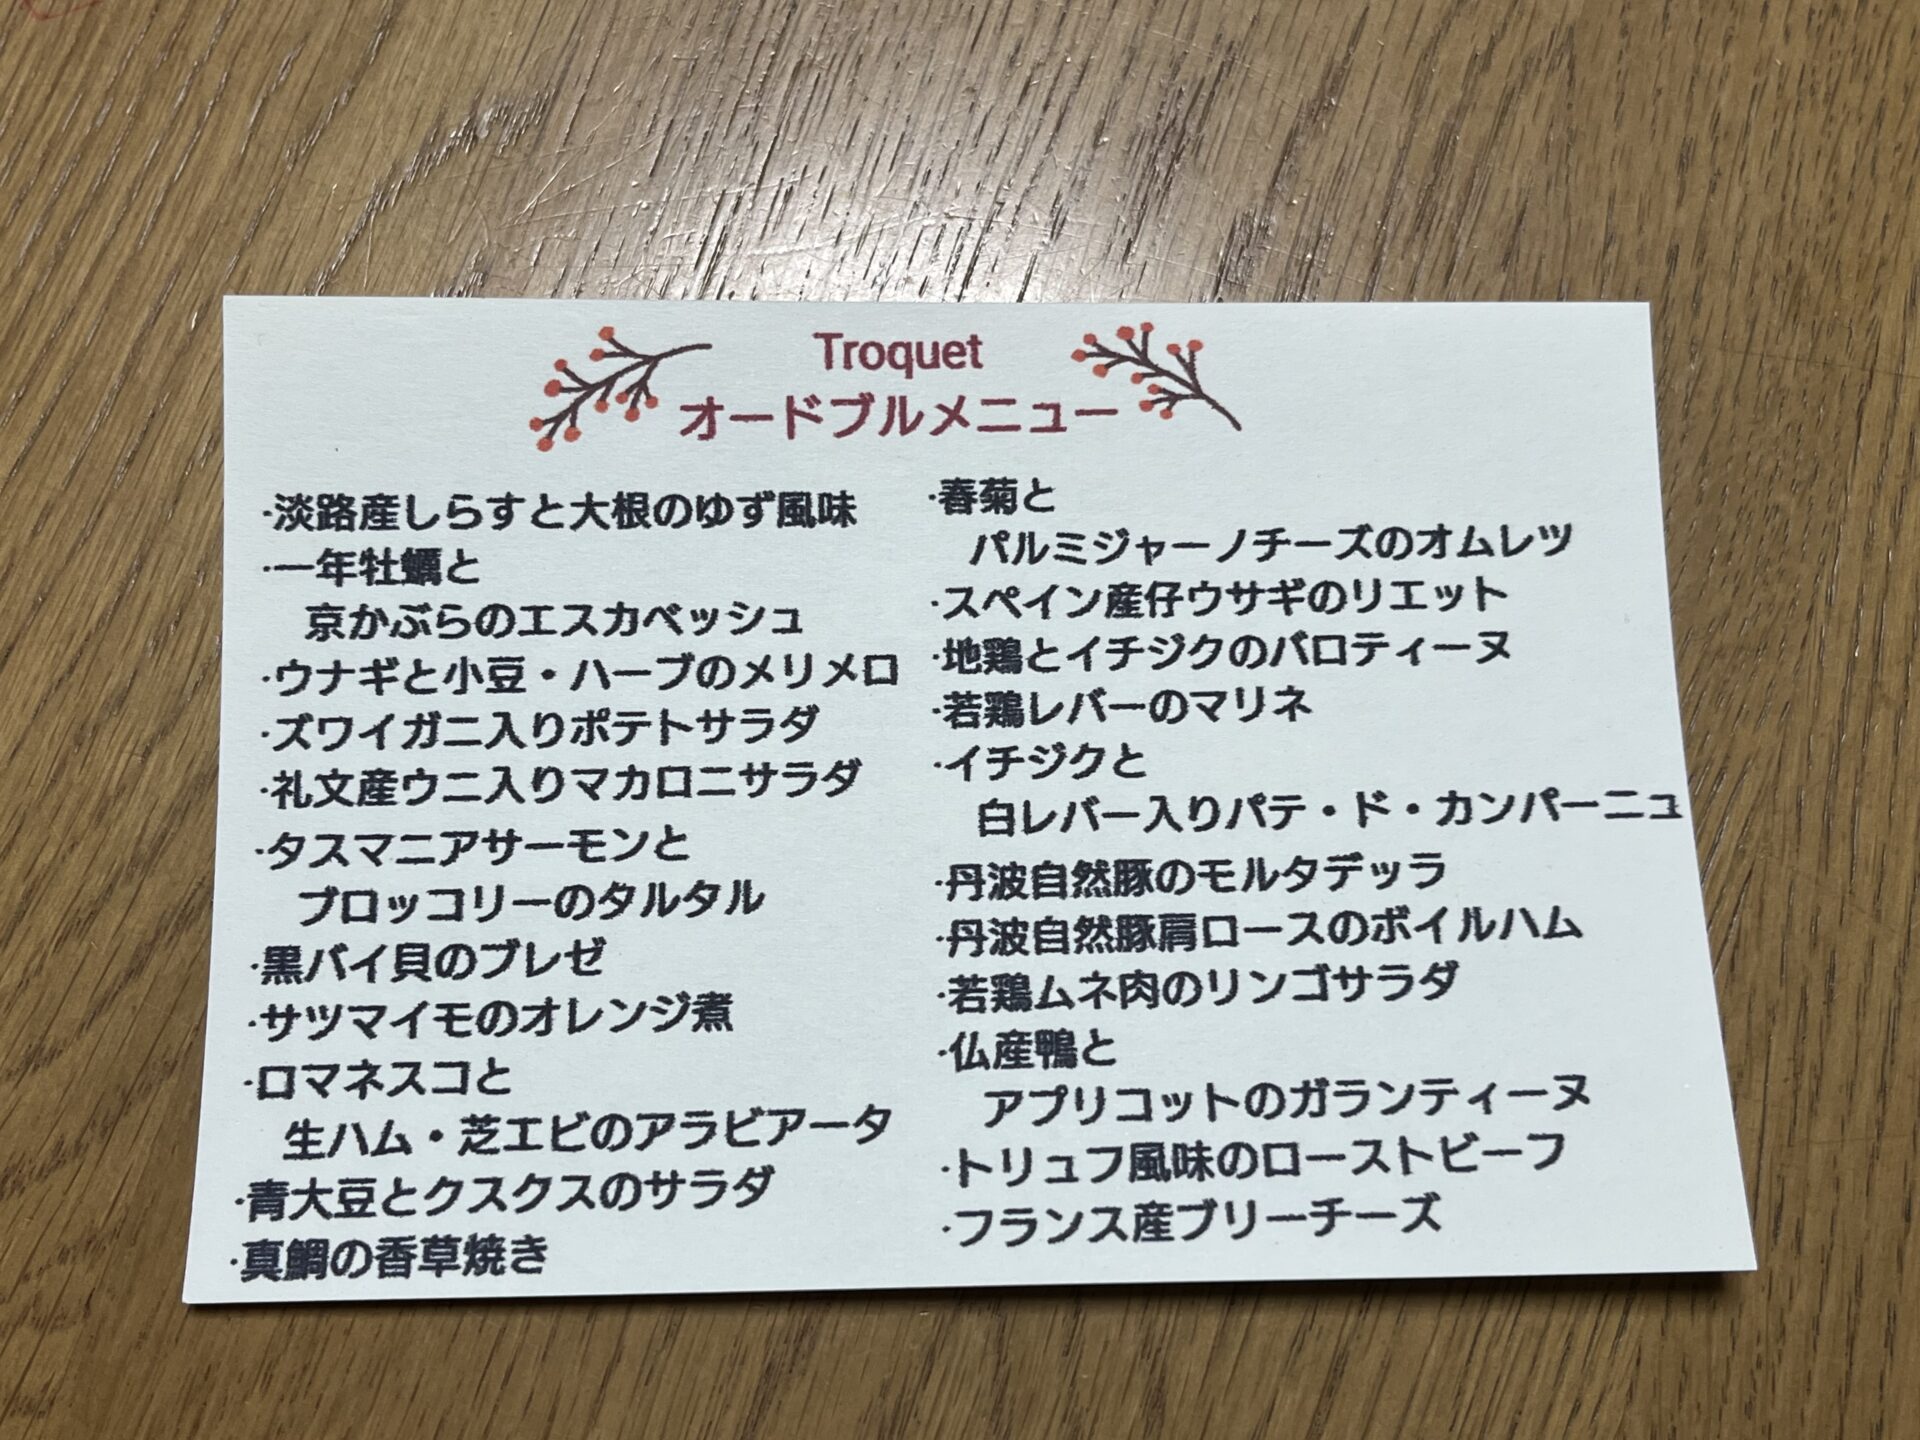 Troquet
オードブルメニュー
·淡路産しらすと大根のゆず風味
·一年牡蠣と
京かぶらのエスカベッシュ
·ウナギと小豆・ハーブのメリメロ
·ズワイガニ入りポテトサラダ
·礼文産ウニ入りマカロニサラダ
·タスマニアサーモンと
ブロッコリーのタルタル
·黒バイ貝のブレゼ
·サツマイモのオレンジ煮
·ロマネスコと
生ハム・芝エビのアラビアータ
·青大豆とクスクスのサラダ
·真鯛の香草焼き
·春菊と
パルミジャーノチーズのオムレツ
·スペイン産仔ウサギのリエット
·地鶏とイチジクのバロティーヌ
·若鶏レバーのマリネ
·イチジクと
白レバー入りパテ・ド・カンパーニュ
·丹波自然豚のモルタデッラ
·丹波自然豚肩ロースのボイルハム
·若鶏ムネ肉のリンゴサラダ
·仏産鴨と
アプリコットのガランティーヌ
·トリュフ風味のローストビーフ
·フランス産ブリーチーズ